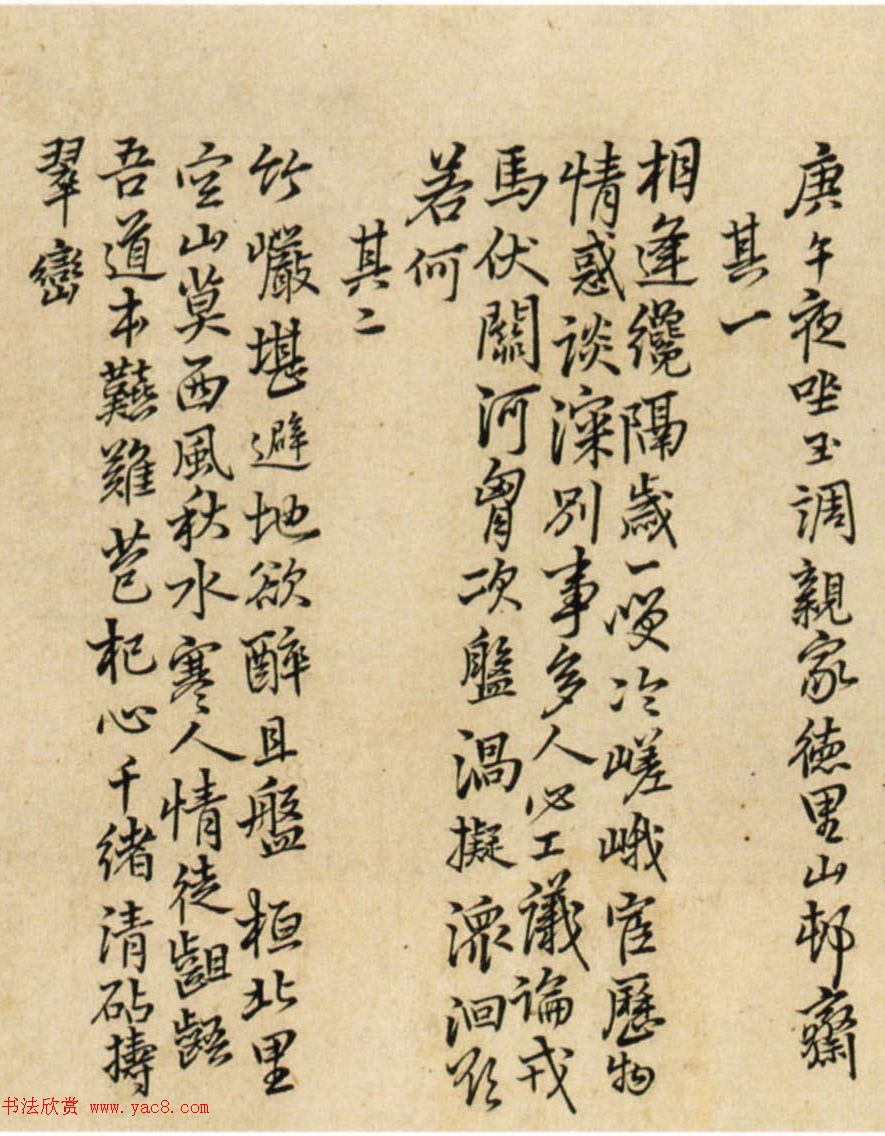 庚午夜坐玉調親家德里山邨齋
其一
相逢纔隔歲一噯冷嵯峨宦歷物
情惑談深別事多人必工議論戎
馬伏關河胷次盤渦擬瀠洄
若何
其二
竹巖堪避地欲醉且盤桓北里
空山莫西風秋水寒人情徒齟齬
吾道本艱難芑杞心千緒清砧擣
翠巒
书法欣赏 www.yac8.com